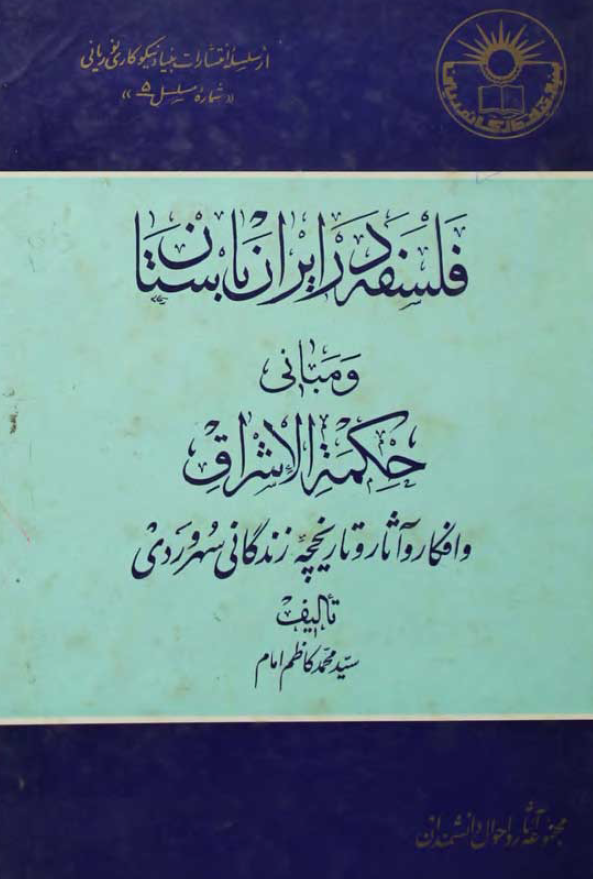 از سلسله انتشارات بنیاد نیکوکاری نوریانی
«شمارهٔ مسلسل ۵»
فلسفه در ایران باستان
و مبانی
حکمة الإشراق
و افکار و آثار و تاریخچهٔ زندگانی سهروردی
تألیف
سیّد محمّد کاظم امام
مجموعه آثار و احوال دانشمندان